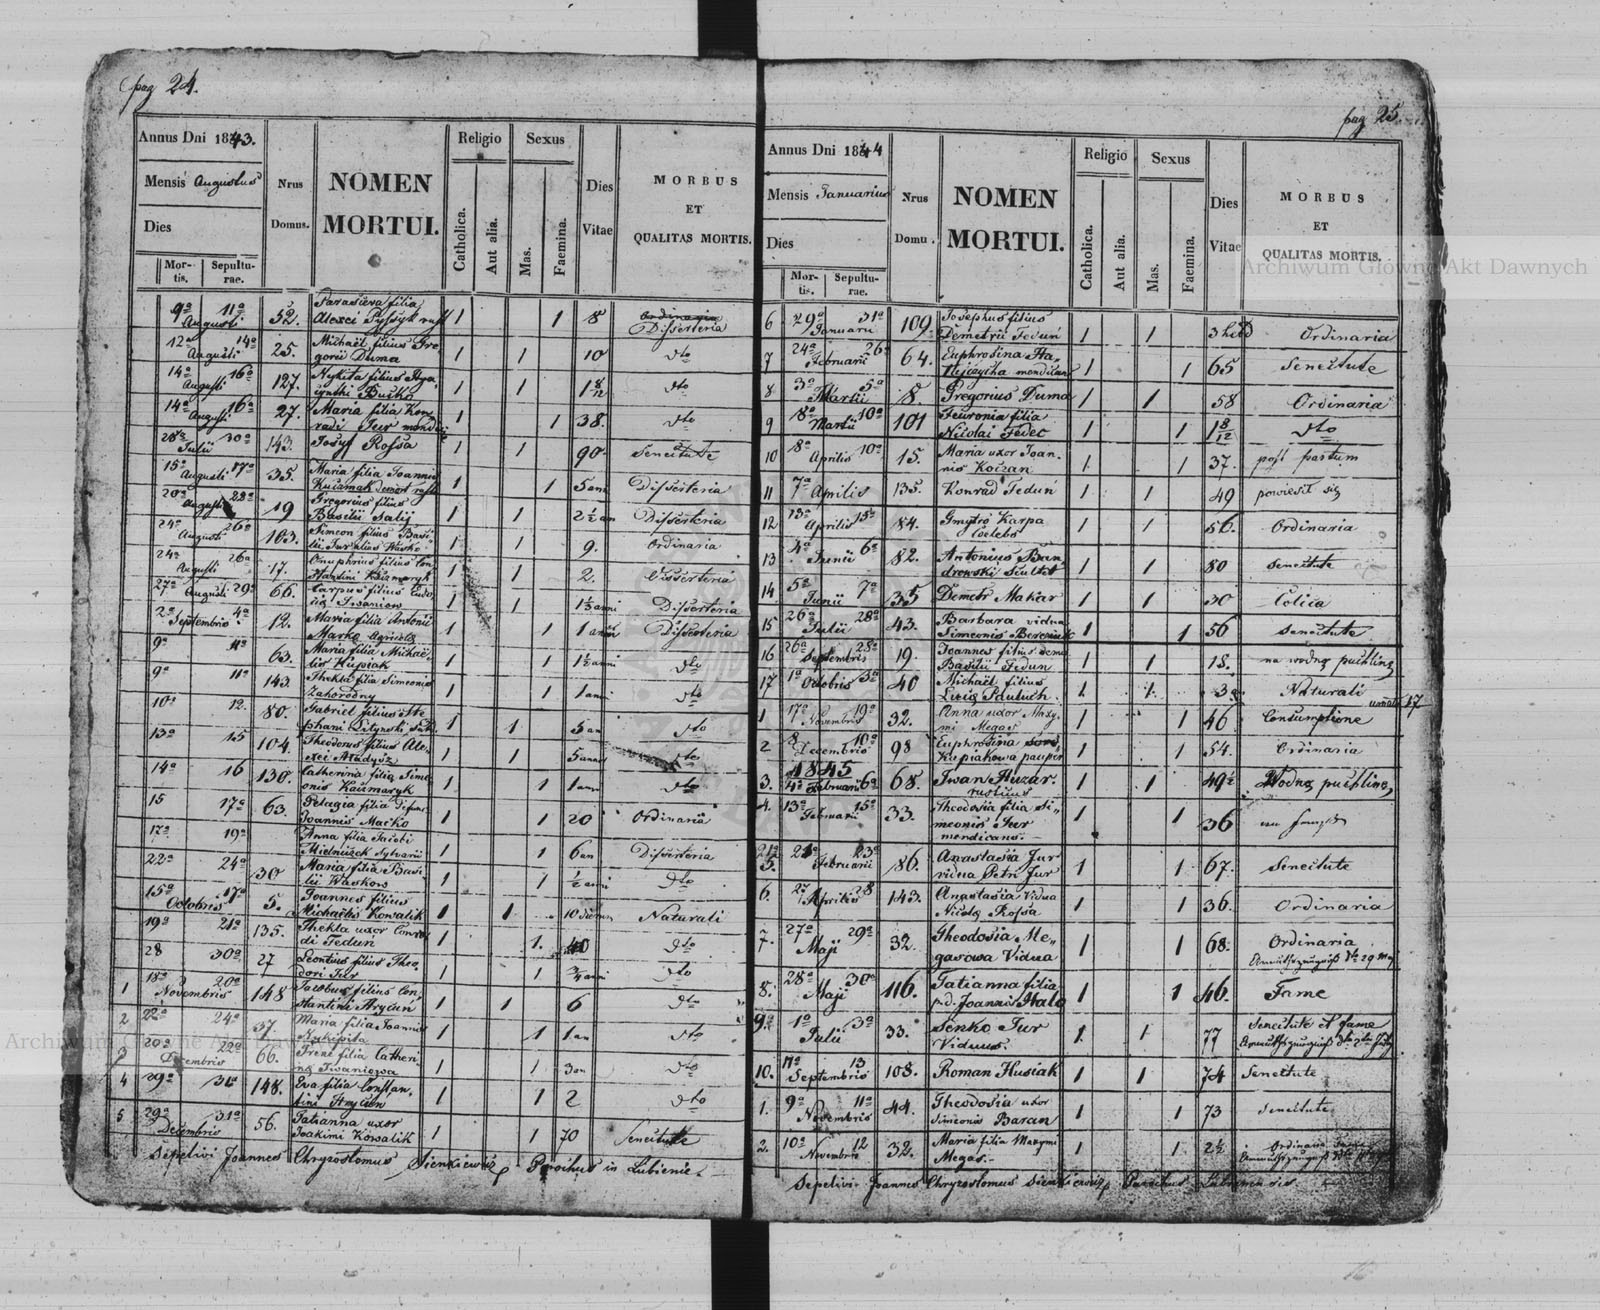 pag 24.
Annus Dni 1843.
Mensis Augustus
Dies
Mortis. Sepulturae.
Nrus Domus.
NOMEN MORTUI.
Religio
Catholica. Aut alia.
Sexus
Mas. Faemina.
Dies Vitae
MORBUS ET QUALITAS MORTIS.
9a 11a Augusti 52. Parasceva filia Alexei 1 1 8 Dissenteria
12a 14a Augusti 25. Michael filius Gregorii Duma 1 1 10 dto
14a 16a Augusti 127. Nykita filius Bucko 1 1 1 8/12 dto
14a 16a Augusti 27. Maria filia Konradi Jur 1 1 38. dto
28a 30a Julii 143. Josyf Rossa 1 1 90 Senectute
15a 17a Augusti 35. Maria filia Joannis 1 1 5 ann Dissenteria
20a 22a Augusti 19 Gregorius filius Basilii Salij 1 1 2 1/2 an Dissenteria
24a 26a Augusti 103. Simeon filius Basilii Jur alius Wasko 1 1 9. Ordinaria
24a 26a Augusti 17. Onuphrius filius Constantini Kaizmaryk 1 1 2. Dissenteria
27a 29a Augusti 66. Carpus filius Iwaniow 1 1 1 1/2 anni Dissenteria
2a 4a Septembris 12. Maria filia Antonii Marko agricola 1 1 1 anni Dissenteria
9a 11a 63. Maria filia Michaelis Kupiak 1 1 1 1/2 anni dto
9a 11a 143. Thekla filia Simeonis Zahorodny 1 1 1 anni dto
10a 12. 80. Gabriel filius Stephani 1 1 5 an dto
13a 15 104. Theodorus filius Alexei Mladysz 1 1 5 anni dto
14a 16 130. Catherina filia Simeonis Kaizmaryk 1 1 1 ann dto
15 17a 63. Pelagia filia Joannis Macko 1 1 20 Ordinaria
17a 19a Anna filia Jacobi 1 1 6 an Dissenteria
22a 24a 30 Maria filia Basilii Waskow 1 1 1/2 anni Dto
15a 17a Octobris 5. Joannes filius Michaelis Kowalik 1 1 10 dierum Naturali
19a 21a 135. Thekla uxor Conradi Fedun 1 1. 40 dto
28 30a 27 Leontius filius Theodori Jur 1 1 3/4 anni dto
1 18a 20a Novembris 148 Jacobus filius Constantini Hrycun 1 1 6 dto
2 22a 24a 37. Maria filia Joannis 1 1 1 an dto
3 20a 22a Decembris 66. Irene filia Catherina Iwaniowa 1 1 3 an dto
4 29a 31a 148. Eva filia Constantini Hrycun 1 1 2 dto
5 29a 31a Decembris 56. Tatianna uxor Joakimi Kowalik 1 1 70 Senectute
Sepelivi Joannes Chryzostomus Sienkiewicz Parochus in Lubienie
pag 25.
Annus Dni 1844
Mensis Januarius
Dies
Mortis. Sepulturae.
Nrus Domu.
NOMEN MORTUI.
Religio
Catholica. Aut alia.
Sexus
Mas. Faemina.
Dies Vitae
MORBUS ET QUALITAS MORTIS.
6 29a 31a Januarii 109. Josephus filius Demetrii Fedun 1 1 3 Ordinaria
7 24a 26a Februarii 64. Euphrosina 1 1 65 Senectute
8 3a 5a Martii 8. Gregorius Duma 1 1 58 Ordinaria
9 8a 10a Martii 101 Feuronia filia Nicolai Fedec 1 1 1 8/12 dto
10 8a 10a Aprilis 15. Maria uxor Joannis Kozan 1 1 37. post partum
11 7a Aprilis 135. Konrad Fedun 1 1 49 powiesił się
12 13a 15a Aprilis 84. Gmytro Karpa Coelebs 1 1 56. Ordinaria
13 4a 6a Junii 82. Antonius Bandrowski 1 1 80 Senectute
14 5a 7a Junii 35 Demetr Makar 1 1 30 Colica
15 26a 28a Julii 43. Barbara vidua Simeonis 1 1 56 Senectute
16 26a 28a Septembris 19. Joannes filius Basilii Fedun 1 1 18. na wodną puchlinę
17 1a 3a Octobris 40 Michael filius Pauluch 1 1 3 Naturali
17
1 17a 19a Novembris 32. Anna uxor Maxymi Megas 1 1 46 Consumptione
2 8 10a Decembris 98 Euphrosina Kupiakowa pauper 1 1 54. Ordinaria
1845
3. 4a 6a Februarii 68. Iwan Huzar. rusticus 1 1 49 Wodną puchlinę
4. 13a 15a Februarii 33. Theodosia filia Simeonis Jur mendicans. 1 1 36
5. 21a 23a Februarii 86. Anastasia Jur vidua Petri Jur 1 1 67. Senectute
6. 27 28 Aprilis 143. Anastasia Vidua Rossa 1 1 36. Ordinaria
7. 27a 29a Maji 32 Theodosia Megasowa Vidua 1 1 68. Ordinaria
8. 28a 30a Maji 116. Tatianna filia p.d. Joannis Hala 1 1 46. Fame
9. 1a 3a Julii 33. Senko Jur Viduus. 1 1 77 Senectute et fame
10. 11a 13 Septembris 108. Roman Husiak 1 1 74 Senectute
1. 9a 11a Novembris 44. Theodosia uxor Simeonis Baran 1 1 73 Senectute
2. 10a 12 Novembris 32. Maria filia Maxymi Megas. 1 1 2 1/2 Ordinaria
Sepelivi Joannes Chryzostomus Sienkiewicz Parochus Lubienensis
Archiwum Główne Akt Dawnych
Archiwum Główne Akt Dawnych